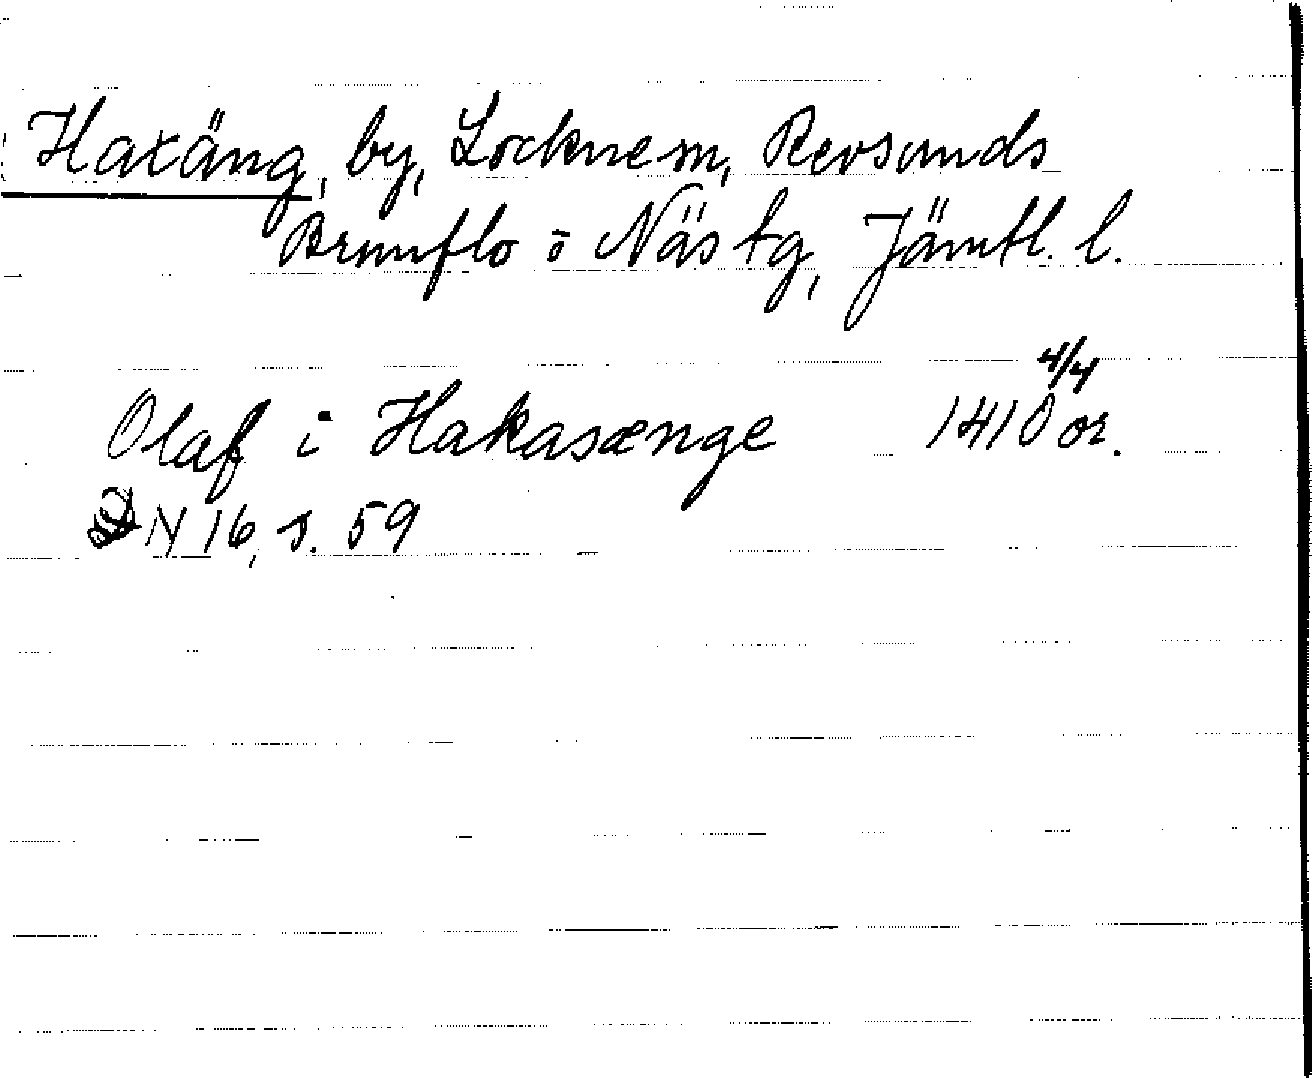 Haxäng, by, Lockne sn, Revsunds
Brunflo o Näs tg, Jämtl. l.
Olaf i Hakasænge 1410 4/4 or.
N 16, s. 59